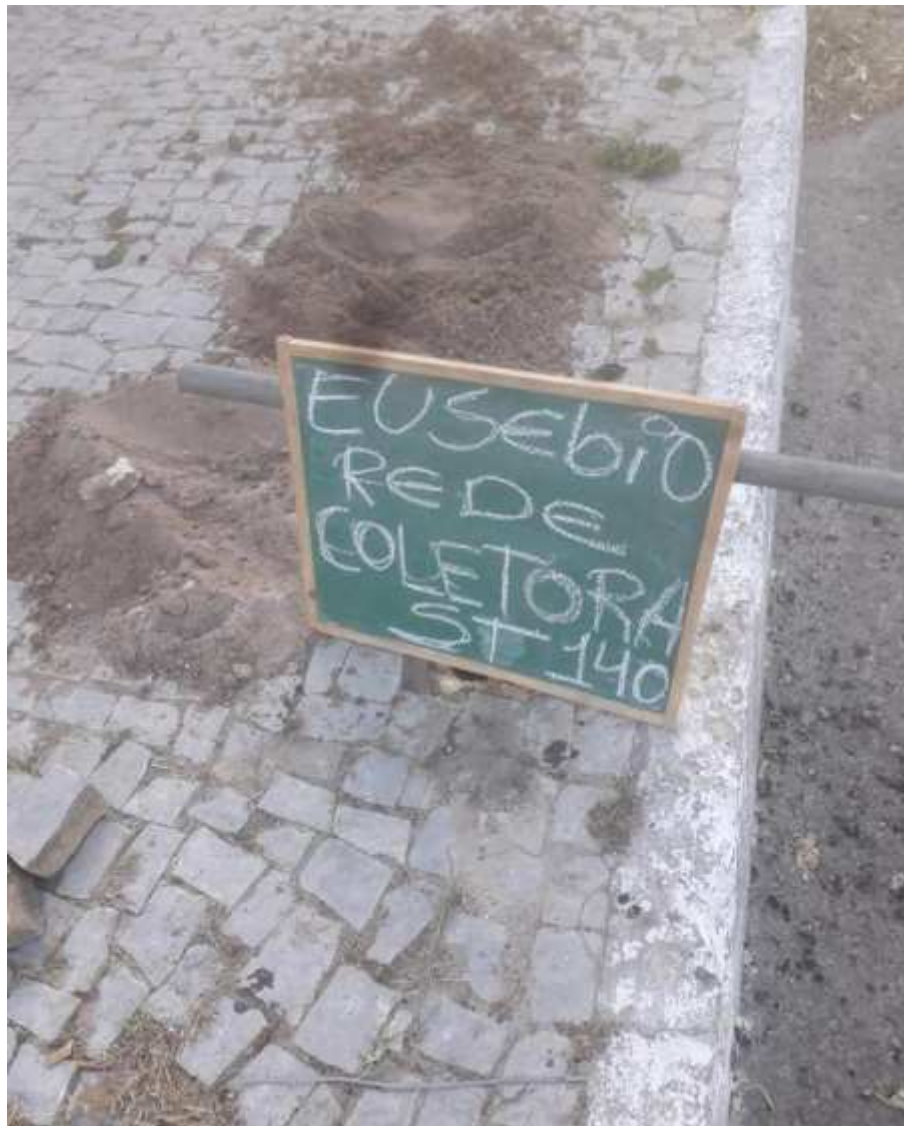 EUSEbiO
REDE
COLETORA
ST 140